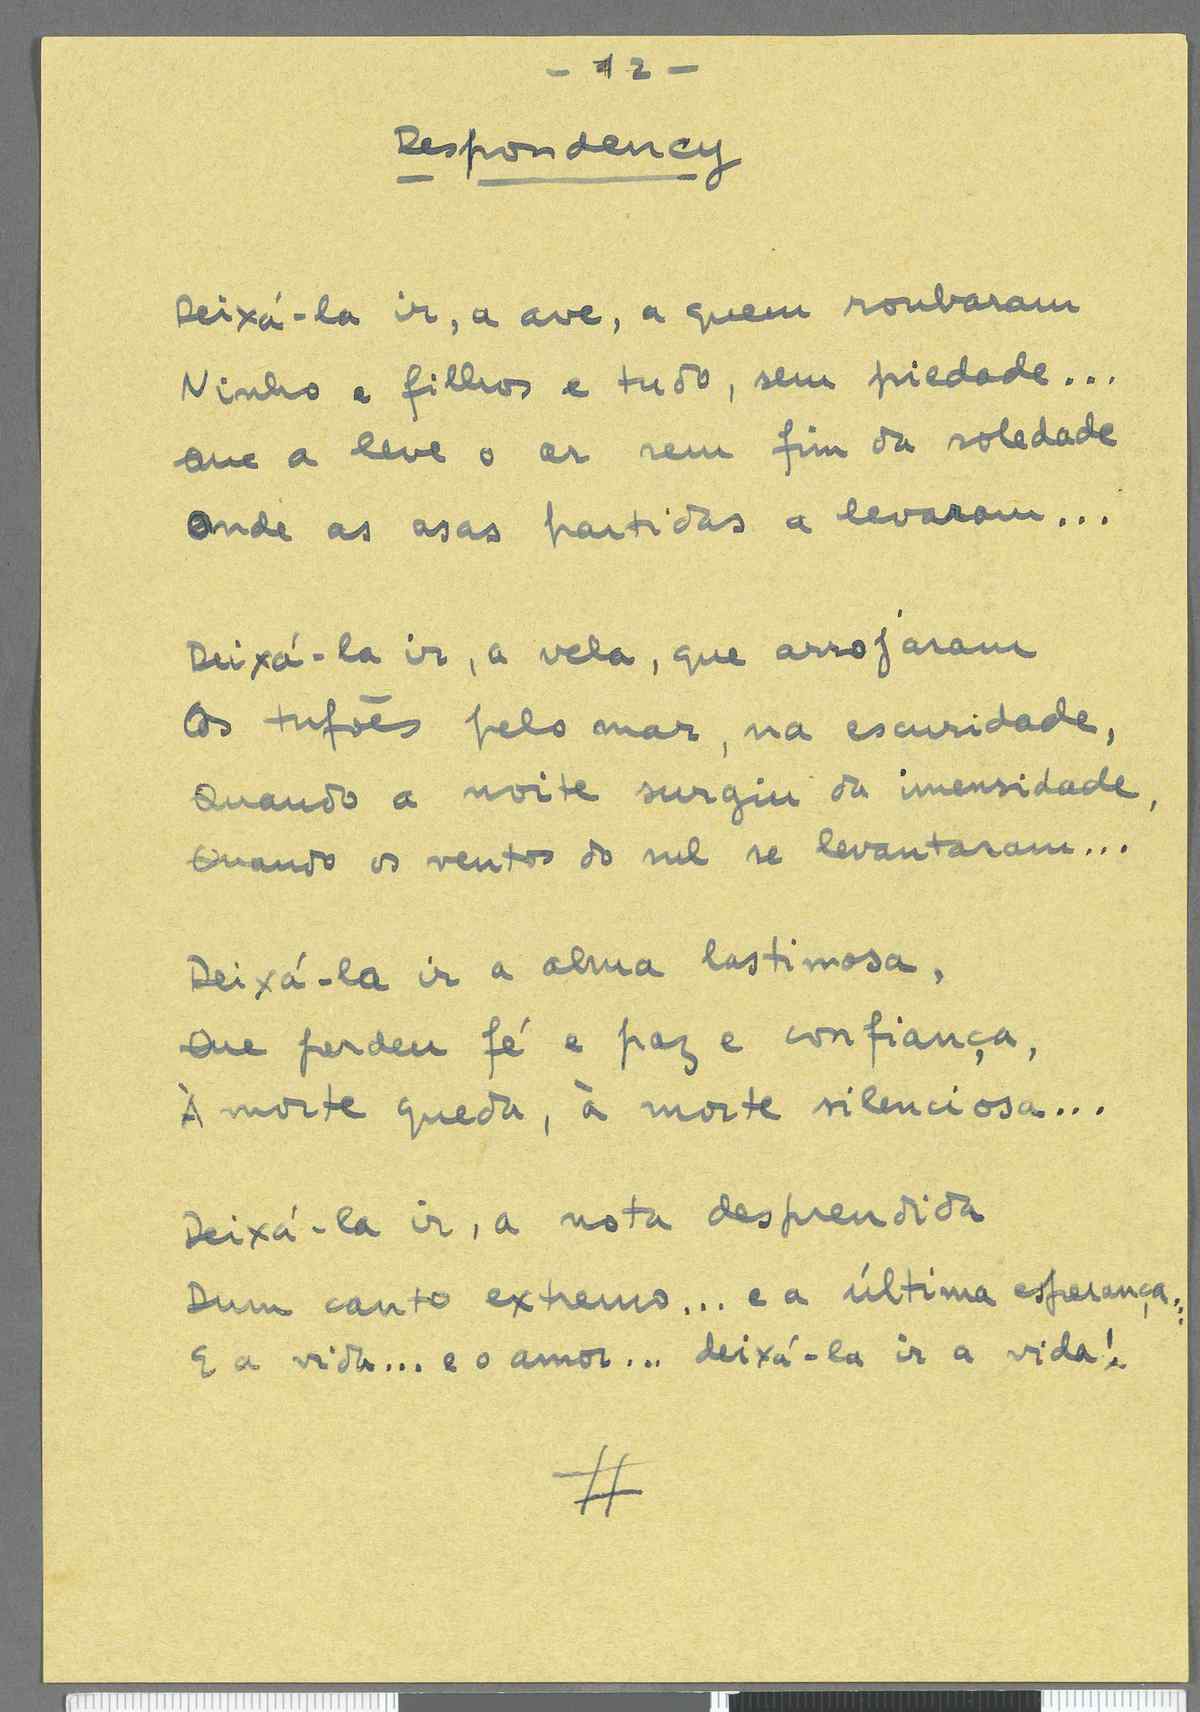 - 12 -
Despondency
Deixá-la ir, a ave, a quem roubaram
Ninho e filhos e tudo, sem piedade...
Que a leve o ar sem fim da soledade
Onde as asas partidas a levaram...
Deixá-la ir, a vela, que arrojaram
Os tufões pelo mar, na escuridade,
Quando a noite surgiu da imensidade,
Quando os ventos do sul se levantaram...
Deixá-la ir a alma lastimosa,
Que perdeu fé e paz e confiança,
À morte queda, à morte silenciosa...
Deixá-la ir, a nota desprendida
Dum canto extremo... e a última esperança...
E a vida... e o amor... deixá-la ir a vida!